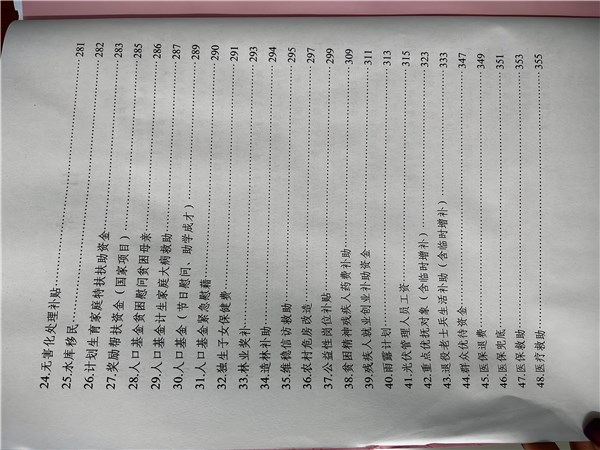 24.无害化处理补贴……281
25.水库移民……282
26.计划生育家庭特扶扶助资金……283
27.奖励帮扶资金（国家项目）……285
28.人口基金贫困慰问贫困母亲……286
29.人口基金计生家庭大病救助……287
30.人口基金（节日慰问、助学成才）……289
31.人口基金紧急慰藉……290
32.独生子女保健费……291
33.林业奖补……293
34.造林补助……294
35.维稳信访救助……295
36.农村危房改造……297
37.公益性岗位补贴……299
38.贫困精神残疾人药费补助……309
39.残疾人就业创业补助资金……311
40.雨露计划……313
41.光伏管理人员工资……315
42.重点优抚对象（含临时增补）……323
43.退役老士兵生活补助（含临时增补）……333
44.群众优待资金……347
45.医保退费……349
46.医保兜底……351
47.医保救助……353
48.医疗救助……355